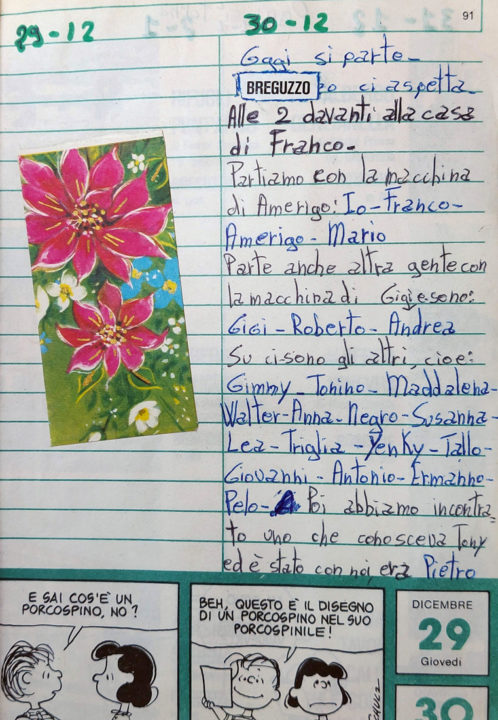 29-12
30-12
91
Oggi si parte-
BREGUZZO ci aspetta.
Alle 2 davanti alla casa
di Franco-
Partiamo con la macchina
di Amerigo: Io-Franco-
Amerigo-Mario
Parte anche altra gente con
la macchina di Gigi e sono:
Gigi-Roberto-Andrea
Su ci sono gli altri, cioe:
Gimmy-Tonino-Maddalena-
Walter-Anna-Negro-Susanna-
Lea-Triglia-Yenky-Tallo-
Giovanni-Antonio-Ermanno-
Pelo- Poi abbiamo incontra
to uno che conosceva Tony
ed è stato con noi, era Pietro
E SAI COS'È UN
PORCOSPINO, NO?
BEH, QUESTO È IL DISEGNO
DI UN PORCOSPINO NEL SUO
PORCOSPINILE!
DICEMBRE
29
Giovedì
30